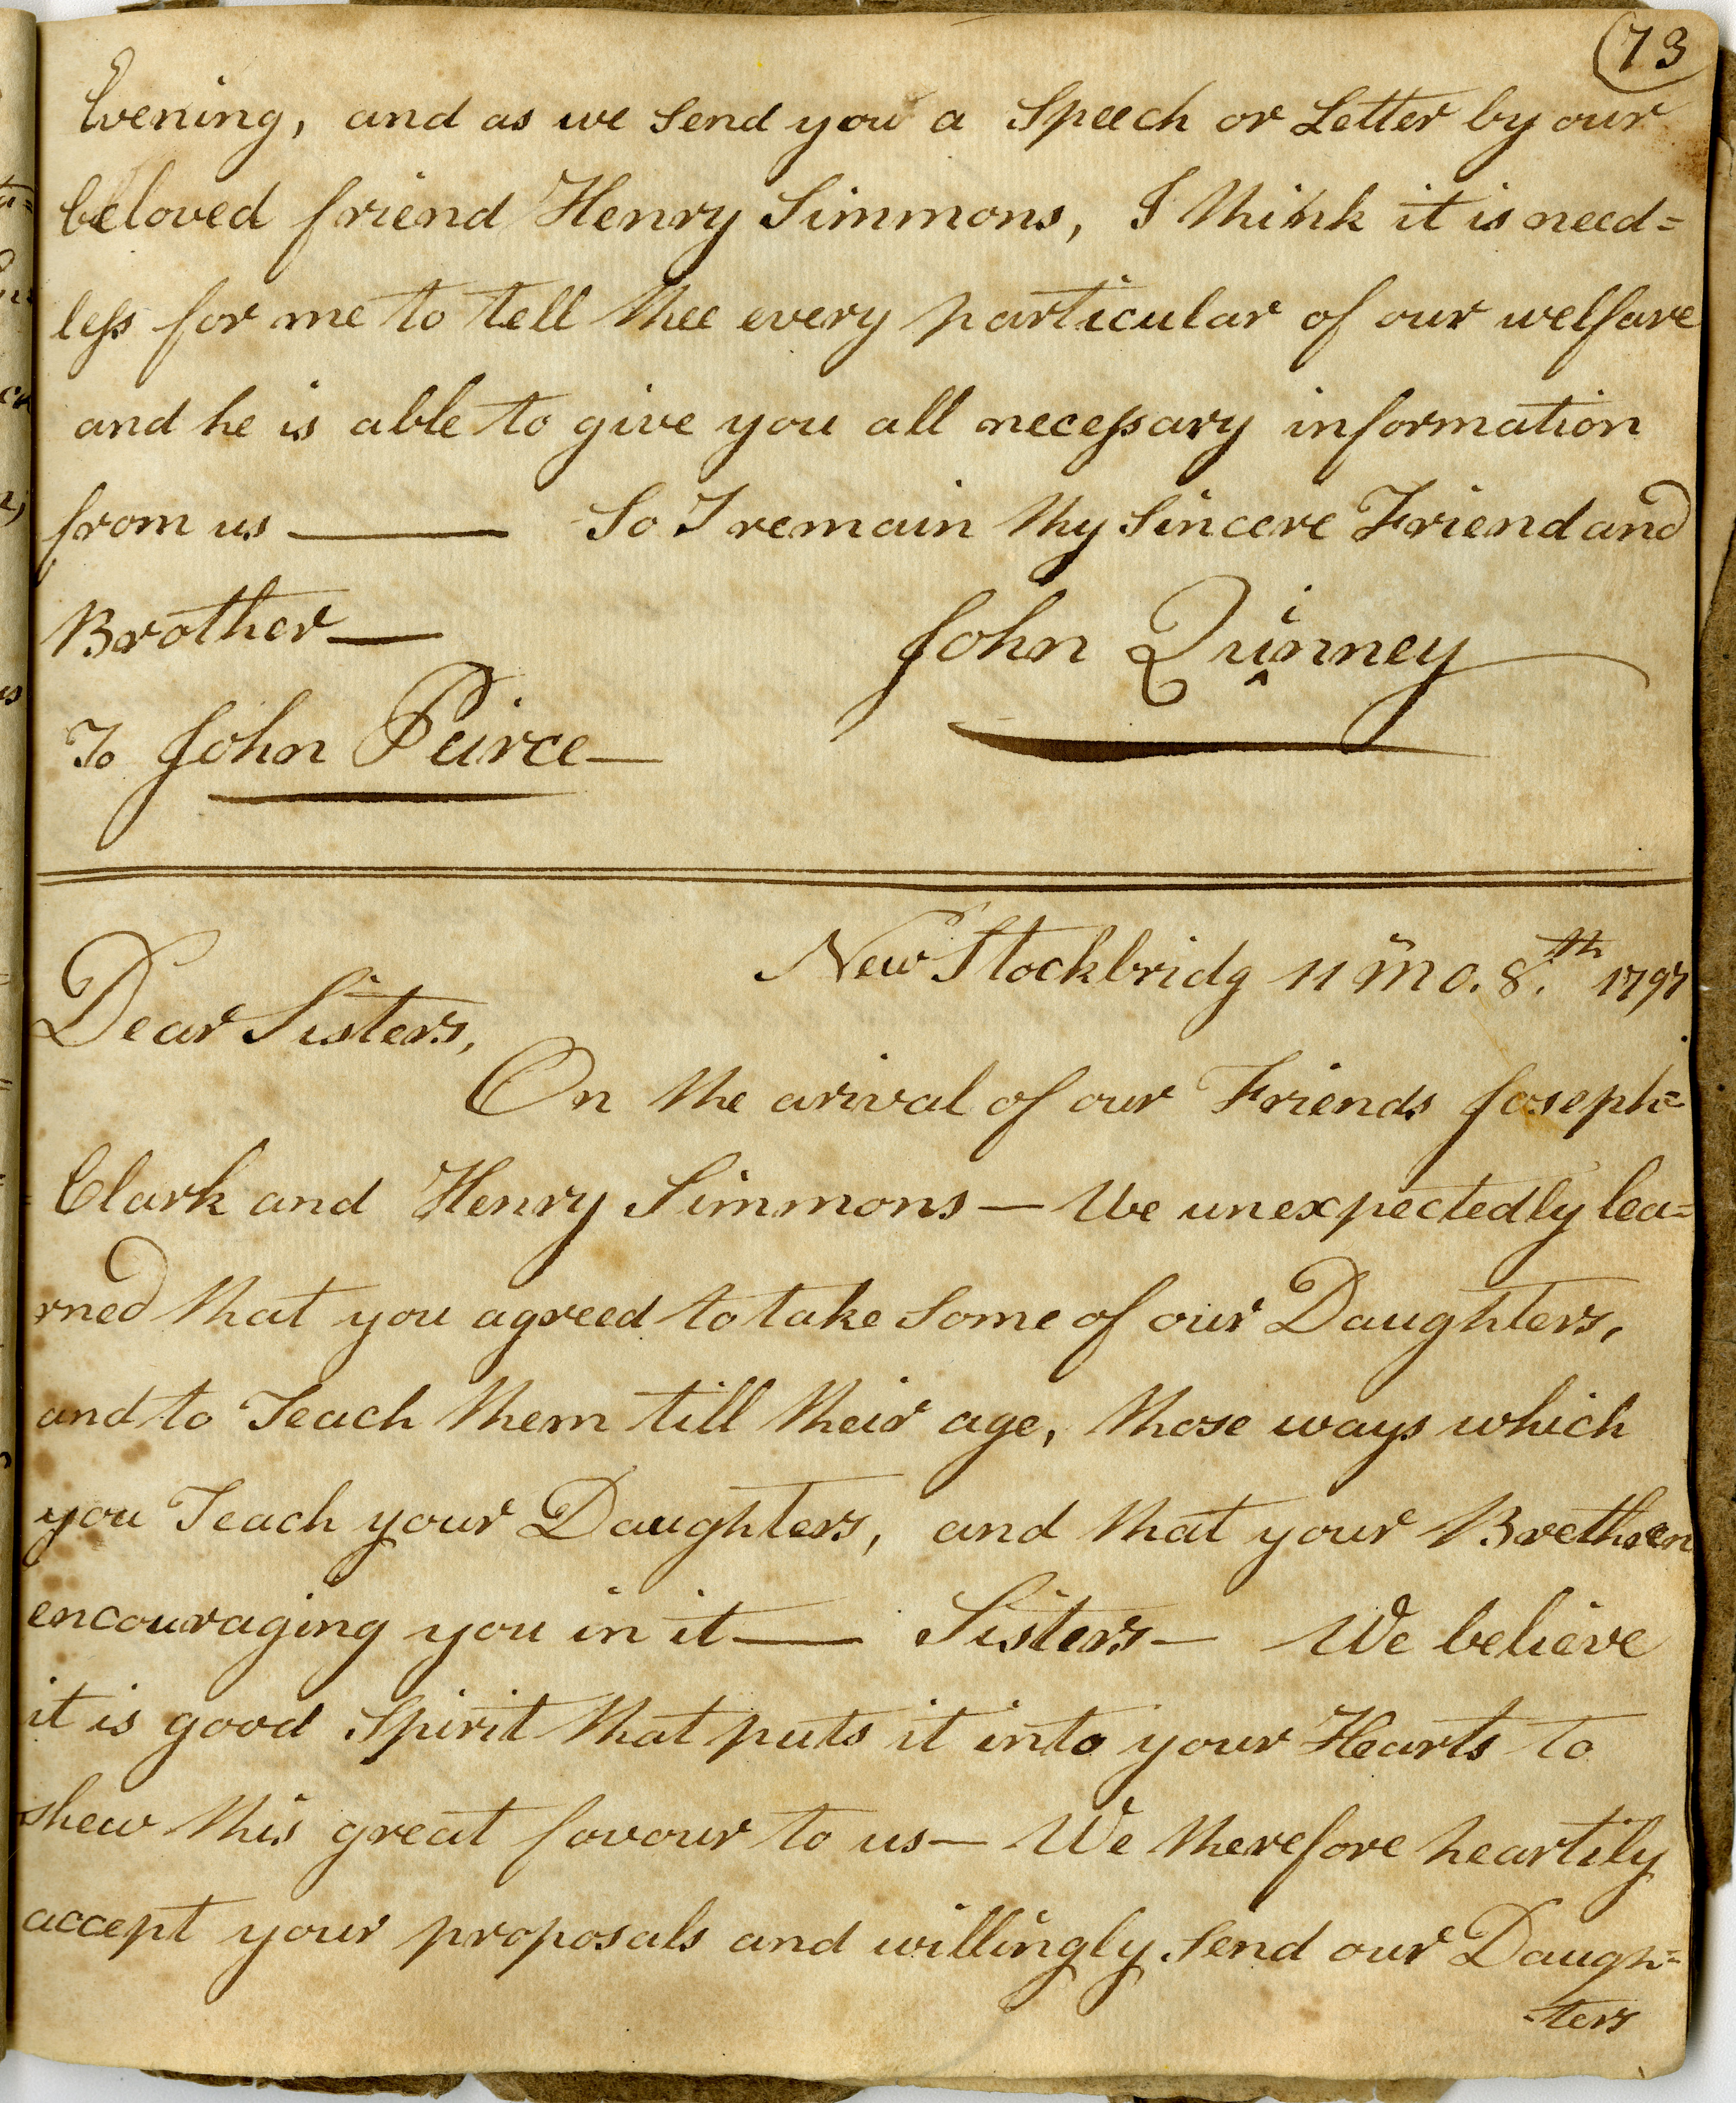 73
Evening, and as we send you a Speech or Letter by our
beloved friend Henry Simmons, I think it is need=
less for me to tell thee every particular of our welfare
and he is able to give you all necessary information
from us — So I remain thy Sincere Friend and
Brother —
John Quinney
To John Peirce —
New Stockbridg 11 mo. 8th. 1797
Dear Sisters,
On the arival of our Friends Joseph=
Clark and Henry Simmons — We unexpectedly lea=
rned that you agreed to take some of our Daughters,
and to Teach them till their age, those ways which
you Teach your Daughters, and that your Brethren
encouraging you in it — Sisters — We believe
it is good Spirit that puts it into your Hearts to
shew this great favour to us — We therefore heartily
accept your proposals and willingly send our Daugh=
=ters